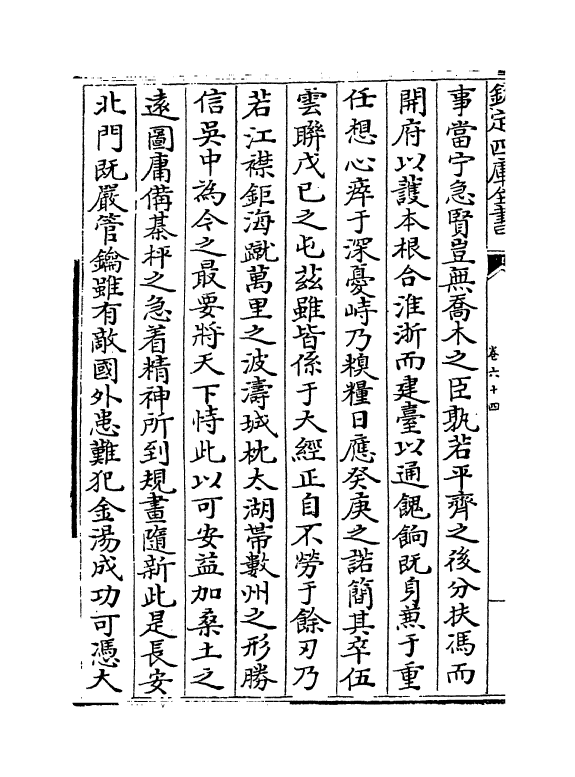 欽定四庫全書
卷六十四
事當宁急賢豈無喬木之臣孰若平齊之後分扶馮而
開府以護本根合淮浙而建臺以通餽餉既身兼于重
任想心瘁于深憂峙乃糗糧日應癸庚之諾簡其卒伍
雲聯戊已之屯茲雖皆係于大經正自不勞于餘刃乃
若江襟鉅海蹴萬里之波濤城枕太湖帶數州之形勝
信吳中為今之最要將天下恃此以可安益加桑土之
遠圖庸備棊枰之急着精神所到規畫隨新此是長安
北門既嚴管鑰雖有敵國外患難犯金湯成功可憑大